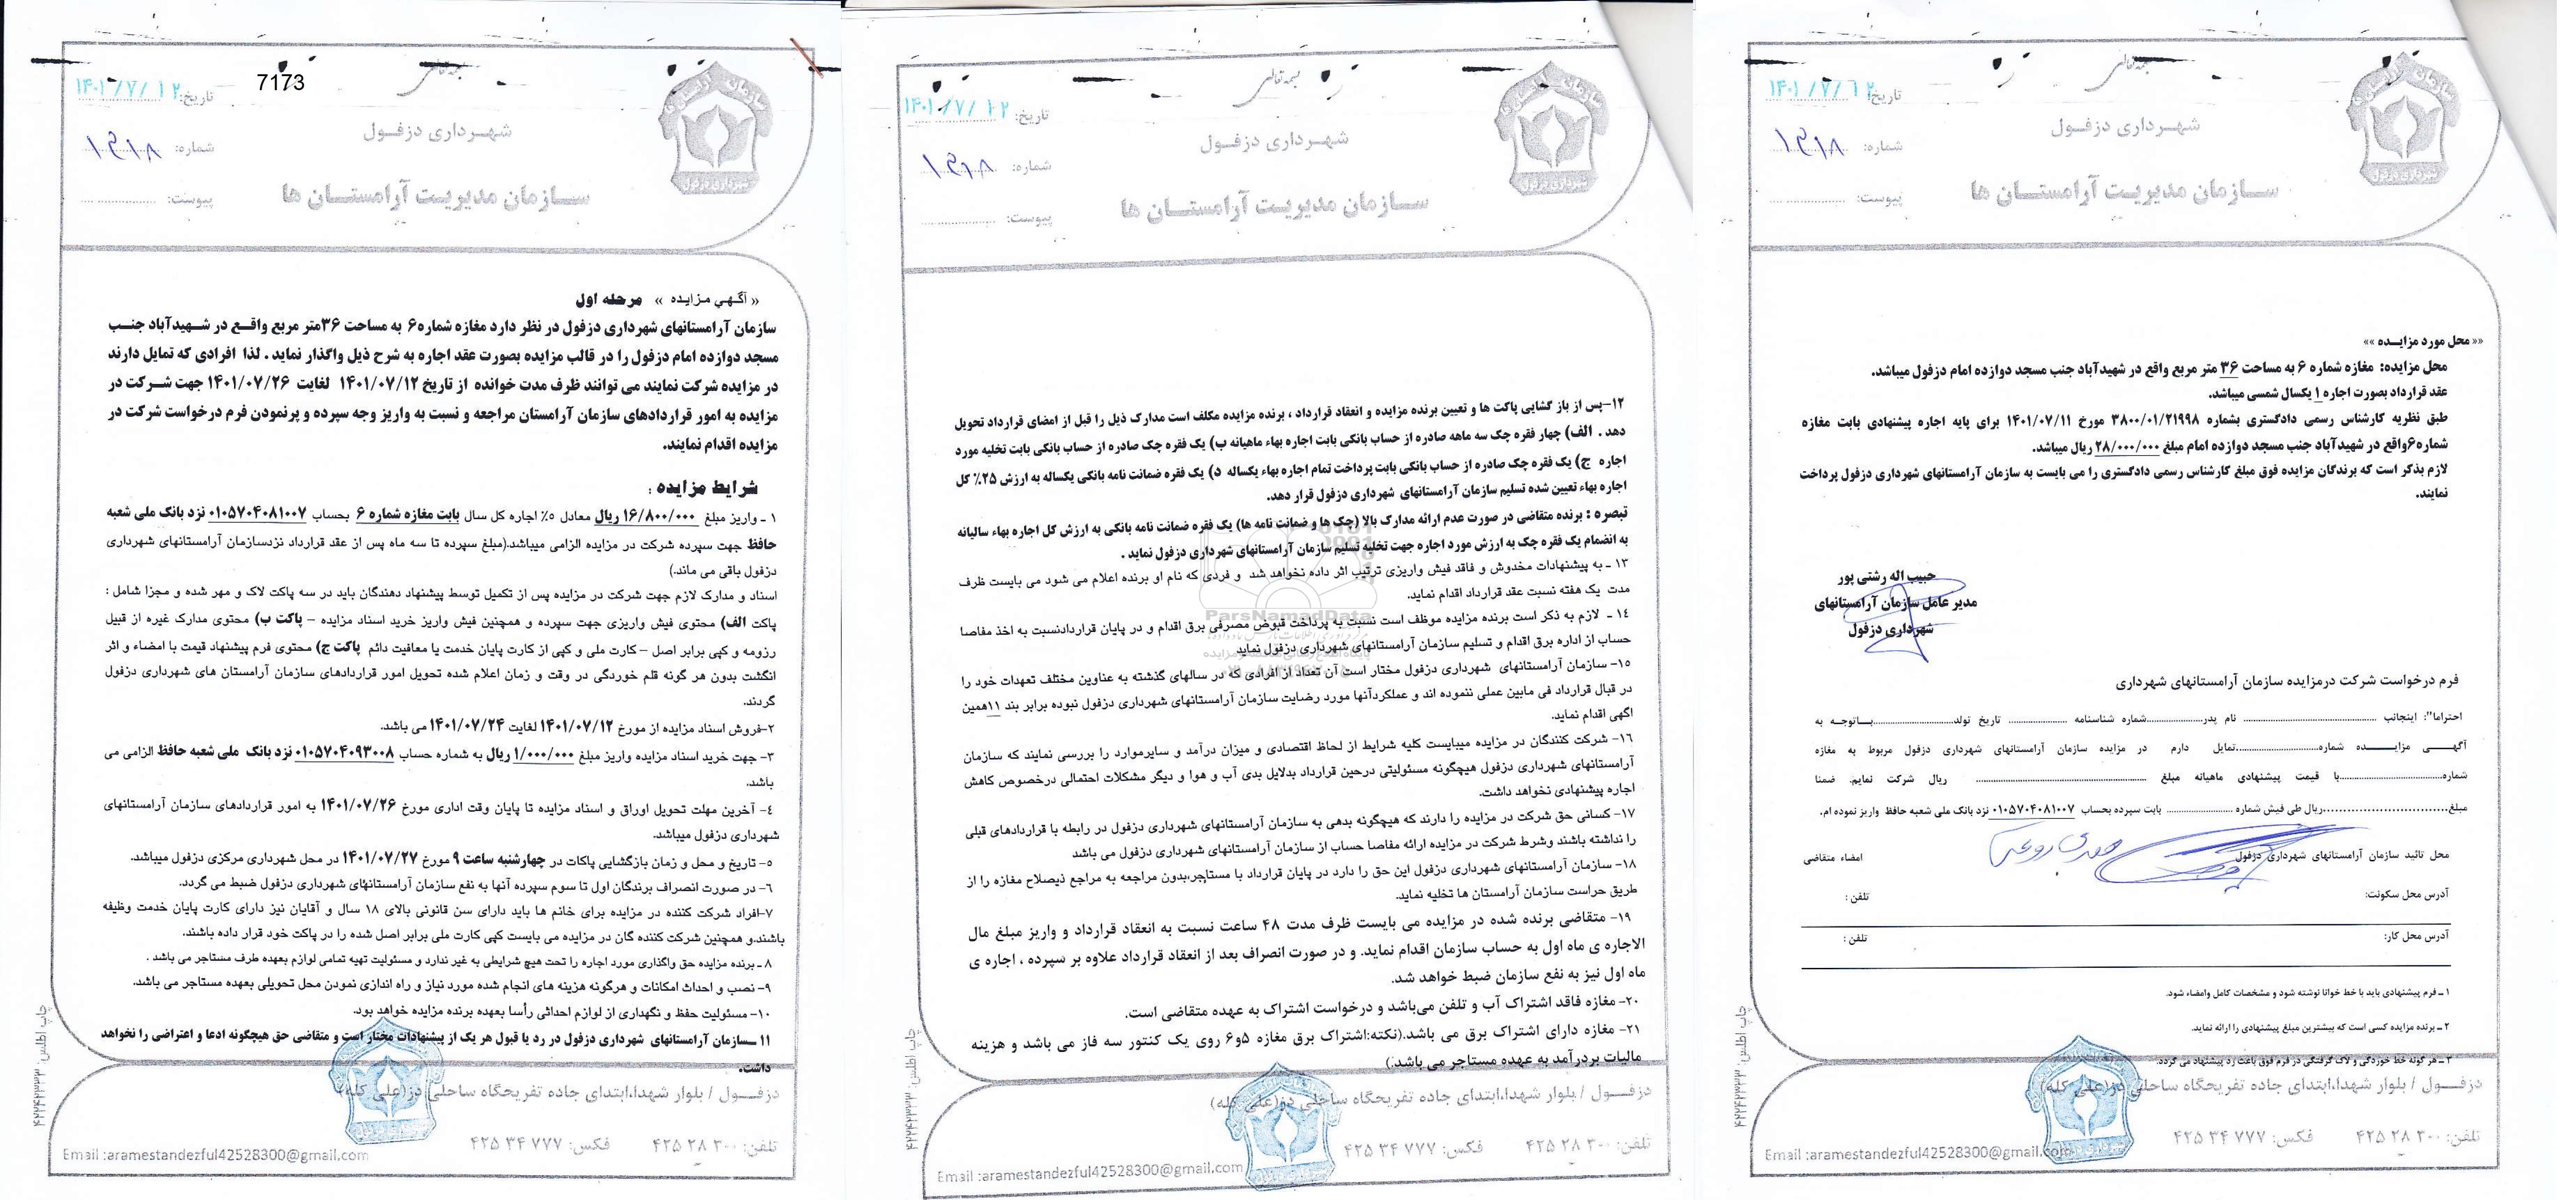 بسمه تعالی
7173
تاریخ: ۱۴۰۱/۷/۱۲
شهرداری دزفول
شماره:
سازمان مدیریت آرامستان ها
پیوست:
« آگهی مزایده » مرحله اول
سازمان آرامستانهای شهرداری دزفول در نظر دارد مغازه شماره۶ به مساحت ۳۶متر مربع واقع در شهیدآباد جنب
مسجد دوازده امام دزفول را در قالب مزایده بصورت عقد اجاره به شرح ذیل واگذار نماید . لذا افرادی که تمایل دارند
در مزایده شرکت نمایند می توانند ظرف مدت خوانده از تاریخ ۱۴۰۱/۰۷/۱۲ لغایت ۱۴۰۱/۰۷/۲۶ جهت شرکت در
مزایده به امور قراردادهای سازمان آرامستان مراجعه و نسبت به واریز وجه سپرده و پرنمودن فرم درخواست شرکت در
مزایده اقدام نمایند.
شرایط مزایده :
۱ ـ واریز مبلغ ۱۶/۸۰۰/۰۰۰ ریال معادل ۵٪ اجاره کل سال بابت مغازه شماره ۶ بحساب ۰۱۰۵۷۰۴۰۸۱۰۰۷ نزد بانک ملی شعبه
حافظ جهت سپرده شرکت در مزایده الزامی میباشد.(مبلغ سپرده تا سه ماه پس از عقد قرارداد نزدسازمان آرامستانهای شهرداری
دزفول باقی می ماند.)
اسناد و مدارک لازم جهت شرکت در مزایده پس از تکمیل توسط پیشنهاد دهندگان باید در سه پاکت لاک و مهر شده و مجزا شامل :
پاکت الف) محتوی فیش واریزی جهت سپرده و همچنین فیش واریز خرید اسناد مزایده – پاکت ب) محتوی مدارک غیره از قبیل
رزومه و کپی برابر اصل – کارت ملی و کپی از کارت پایان خدمت یا معافیت دائم پاکت ج) محتوی فرم پیشنهاد قیمت با امضاء و اثر
انگشت بدون هر گونه قلم خوردگی در وقت و زمان اعلام شده تحویل امور قراردادهای سازمان آرامستان های شهرداری دزفول
گردند.
۲-فروش اسناد مزایده از مورخ ۱۴۰۱/۰۷/۱۲ لغایت ۱۴۰۱/۰۷/۲۴ می باشد.
۳- جهت خرید اسناد مزایده واریز مبلغ ۱/۰۰۰/۰۰۰ ریال به شماره حساب ۰۱۰۵۷۰۴۰۹۳۰۰۸ نزد بانک ملی شعبه حافظ الزامی می
باشد.
۴- آخرین مهلت تحویل اوراق و اسناد مزایده تا پایان وقت اداری مورخ ۱۴۰۱/۰۷/۲۶ به امور قراردادهای سازمان آرامستانهای
شهرداری دزفول میباشد.
۵- تاریخ و محل و زمان بازگشایی پاکات در چهارشنبه ساعت ۹ مورخ ۱۴۰۱/۰۷/۲۷ در محل شهرداری مرکزی دزفول میباشد.
۶- در صورت انصراف برندگان اول تا سوم سپرده آنها به نفع سازمان آرامستانهای شهرداری دزفول ضبط می گردد.
۷-افراد شرکت کننده در مزایده برای خانم ها باید دارای سن قانونی بالای ۱۸ سال و آقایان نیز دارای کارت پایان خدمت وظیفه
باشند.و همچنین شرکت کننده گان در مزایده می بایست کپی کارت ملی برابر اصل شده را در پاکت خود قرار داده باشند.
۸ ـ برنده مزایده حق واگذاری مورد اجاره را تحت هیچ شرایطی به غیر ندارد و مسئولیت تهیه تمامی لوازم بعهده طرف مستاجر می باشد .
۹- نصب و احداث امکانات و هرگونه هزینه های انجام شده مورد نیاز و راه اندازی نمودن محل تحویلی بعهده مستاجر می باشد.
۱۰- مسئولیت حفظ و نگهداری از لوازم احداثی رأسا بعهده برنده مزایده خواهد بود.
۱۱ ــسازمان آرامستانهای شهرداری دزفول در رد یا قبول هر یک از پیشنهادات مختار است و متقاضی حق هیچگونه ادعا و اعتراضی را نخواهد
داشت.
دزفـول / بلوار شهدا،ابتدای جاده تفریحگاه ساحلی دز(علی کله)
تلفن: ۳۰۰ ۲۸ ۴۲۵ فکس: ۷۷۷ ۳۴ ۴۲۵
Email :aramestandezful42528300@gmail.com
چاپ اطلس: ۴۲۲۴۲۳۳۳
بسمه تعالی
تاریخ: ۱۴۰۱/۷/۱۲
شهرداری دزفول
شماره:
سازمان مدیریت آرامستان ها
پیوست:
۱۲-پس از باز گشایی پاکت ها و تعیین برنده مزایده و انعقاد قرارداد ، برنده مزایده مکلف است مدارک ذیل را قبل از امضای قرارداد تحویل
دهد . الف) چهار فقره چک سه ماهه صادره از حساب بانکی بابت اجاره بهاء ماهیانه ب) یک فقره چک صادره از حساب بانکی بابت تخلیه مورد
اجاره ج) یک فقره چک صادره از حساب بانکی بابت پرداخت تمام اجاره بهاء یکساله د) یک فقره ضمانت نامه بانکی یکساله به ارزش ۲۵٪ کل
اجاره بهاء تعیین شده تسلیم سازمان آرامستانهای شهرداری دزفول قرار دهد.
تبصره : برنده متقاضی در صورت عدم ارائه مدارک بالا (چک ها و ضمانت نامه ها) یک فقره ضمانت نامه بانکی به ارزش کل اجاره بهاء سالیانه
به انضمام یک فقره چک به ارزش مورد اجاره جهت تخلیه تسلیم سازمان آرامستانهای شهرداری دزفول نماید .
۱۳ ـ به پیشنهادات مخدوش و فاقد فیش واریزی ترتیب اثر داده نخواهد شد و فردی که نام او برنده اعلام می شود می بایست ظرف
مدت یک هفته نسبت عقد قرارداد اقدام نماید.
ParsNamadData
۱۴ ـ لازم به ذکر است برنده مزایده موظف است نسبت به پرداخت قبوض مصرفی برق اقدام و در پایان قراردادنسبت به اخذ مفاصا
حساب از اداره برق اقدام و تسلیم سازمان آرامستانهای شهرداری دزفول نماید
۱۵- سازمان آرامستانهای شهرداری دزفول مختار است آن تعداد از افرادی که در سالهای گذشته به عناوین مختلف تعهدات خود را
در قبال قرارداد فی مابین عملی ننموده اند و عملکردآنها مورد رضایت سازمان آرامستانهای شهرداری دزفول نبوده برابر بند ۱۱همین
اگهی اقدام نماید.
۱۶- شرکت کنندگان در مزایده میبایست کلیه شرایط از لحاظ اقتصادی و میزان درآمد و سایرموارد را بررسی نمایند که سازمان
آرامستانهای شهرداری دزفول هیچگونه مسئولیتی درحین قرارداد بدلایل بدی آب و هوا و دیگر مشکلات احتمالی درخصوص کاهش
اجاره پیشنهادی نخواهد داشت.
۱۷- کسانی حق شرکت در مزایده را دارند که هیچگونه بدهی به سازمان آرامستانهای شهرداری دزفول در رابطه با قراردادهای قبلی
را نداشته باشند وشرط شرکت در مزایده ارائه مفاصا حساب از سازمان آرامستانهای شهرداری دزفول می باشد
۱۸- سازمان آرامستانهای شهرداری دزفول این حق را دارد در پایان قرارداد با مستاجر،بدون مراجعه به مراجع ذیصلاح مغازه را از
طریق حراست سازمان آرامستان ها تخلیه نماید.
۱۹- متقاضی برنده شده در مزایده می بایست ظرف مدت ۴۸ ساعت نسبت به انعقاد قرارداد و واریز مبلغ مال
الاجاره ی ماه اول به حساب سازمان اقدام نماید. و در صورت انصراف بعد از انعقاد قرارداد علاوه بر سپرده ، اجاره ی
ماه اول نیز به نفع سازمان ضبط خواهد شد.
۲۰- مغازه فاقد اشتراک آب و تلفن می‌باشد و درخواست اشتراک به عهده متقاضی است.
۲۱- مغازه دارای اشتراک برق می باشد.(نکته:اشتراک برق مغازه ۵و۶ روی یک کنتور سه فاز می باشد و هزینه
مالیات بردرآمد به عهده مستاجر می باشد.)
دزفـول / بلوار شهدا،ابتدای جاده تفریحگاه ساحلی دز(علی کله)
تلفن: ۳۰۰ ۲۸ ۴۲۵ فکس: ۷۷۷ ۳۴ ۴۲۵
Email :aramestandezful42528300@gmail.com
چاپ اطلس: ۴۲۲۴۲۳۳۳
بسمه تعالی
تاریخ: ۱۴۰۱/۷/۱۲
شهرداری دزفول
شماره:
سازمان مدیریت آرامستان ها
پیوست:
«« محل مورد مزایـده »»
محل مزایده: مغازه شماره ۶ به مساحت ۳۶ متر مربع واقع در شهیدآباد جنب مسجد دوازده امام دزفول میباشد.
عقد قرارداد بصورت اجاره ۱ یکسال شمسی میباشد.
طبق نظریه کارشناس رسمی دادگستری بشماره ۳۸۰۰/۰۱/۲۱۹۹۸ مورخ ۱۴۰۱/۰۷/۱۱ برای پایه اجاره پیشنهادی بابت مغازه
شماره۶واقع در شهیدآباد جنب مسجد دوازده امام مبلغ ۲۸/۰۰۰/۰۰۰ ریال میباشد.
لازم بذکر است که برندگان مزایده فوق مبلغ کارشناس رسمی دادگستری را می بایست به سازمان آرامستانهای شهرداری دزفول پرداخت
نمایند.
حبیب اله رشتی پور
مدیر عامل سازمان آرامستانهای
شهرداری دزفول
فرم درخواست شرکت درمزایده سازمان آرامستانهای شهرداری
احتراما": اینجانب ........ نام پدر........شماره شناسنامه ........ تاریخ تولد........باتوجه به
آگهی مزایده شماره........تمایل دارم در مزایده سازمان آرامستانهای شهرداری دزفول مربوط به مغازه
شماره........با قیمت پیشنهادی ماهیانه مبلغ ........ ریال شرکت نمایم. ضمنا
مبلغ........ریال طی فیش شماره ........ بابت سپرده بحساب ۰۱۰۵۷۰۴۰۸۱۰۰۷ نزد بانک ملی شعبه حافظ واریز نموده ام.
محل تائید سازمان آرامستانهای شهرداری دزفول امضاء متقاضی
آدرس محل سکونت: تلفن :
آدرس محل کار: تلفن :
۱ ـ فرم پیشنهادی باید با خط خوانا نوشته شود و مشخصات کامل وامضاء شود.
۲ ـ برنده مزایده کسی است که بیشترین مبلغ پیشنهادی را ارائه نماید.
۳ ـ هر گونه خط خوردگی و لاک گرفتگی در فرم فوق باعث رد پیشنهاد می گردد.
دزفـول / بلوار شهدا،ابتدای جاده تفریحگاه ساحلی دز(علی کله)
تلفن: ۳۰۰ ۲۸ ۴۲۵ فکس: ۷۷۷ ۳۴ ۴۲۵
Email :aramestandezful42528300@gmail.com
چاپ اطلس: ۴۲۲۴۲۳۳۳